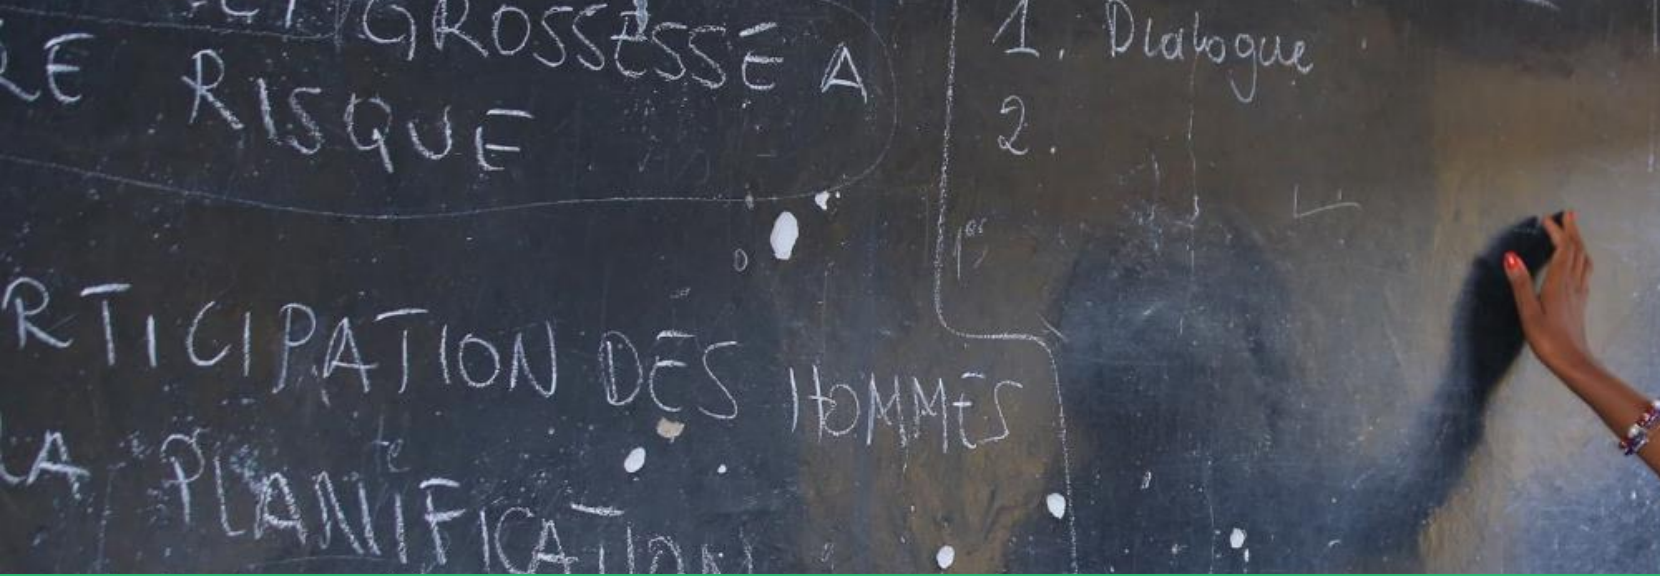 GROSSESSE A
RE RISQUE
RTICIPATION DES HOMMES
LA PLANIFICATION
1. Dialogue
2.